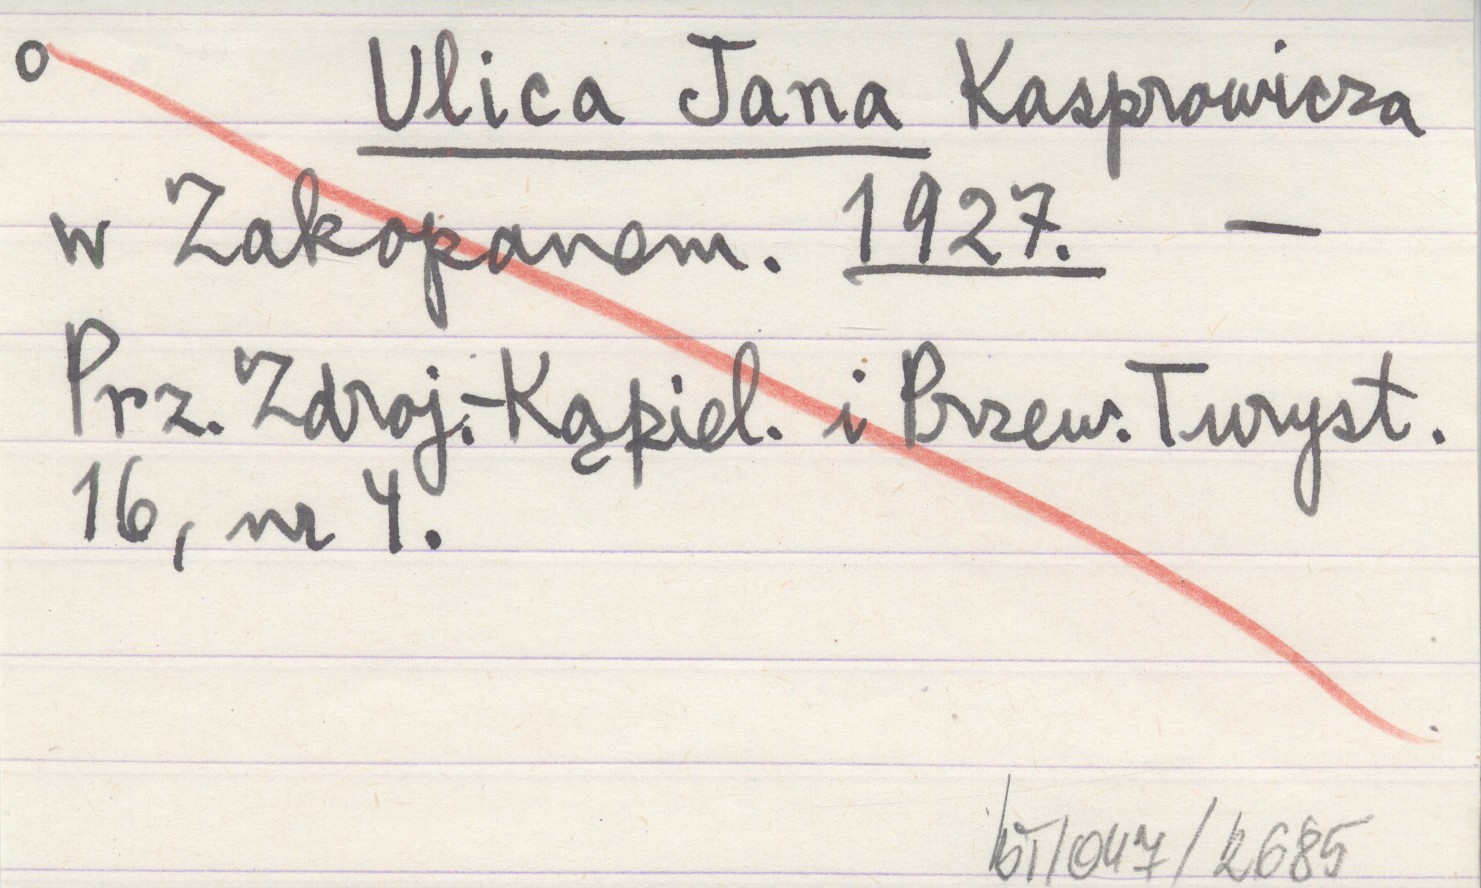 o Ulica Jana Kasprowicza
w Zakopanem. 1927. —
Prz. Zdroj.-Kąpiel. i Przew. Turyst.
16, nr 4.
/2685